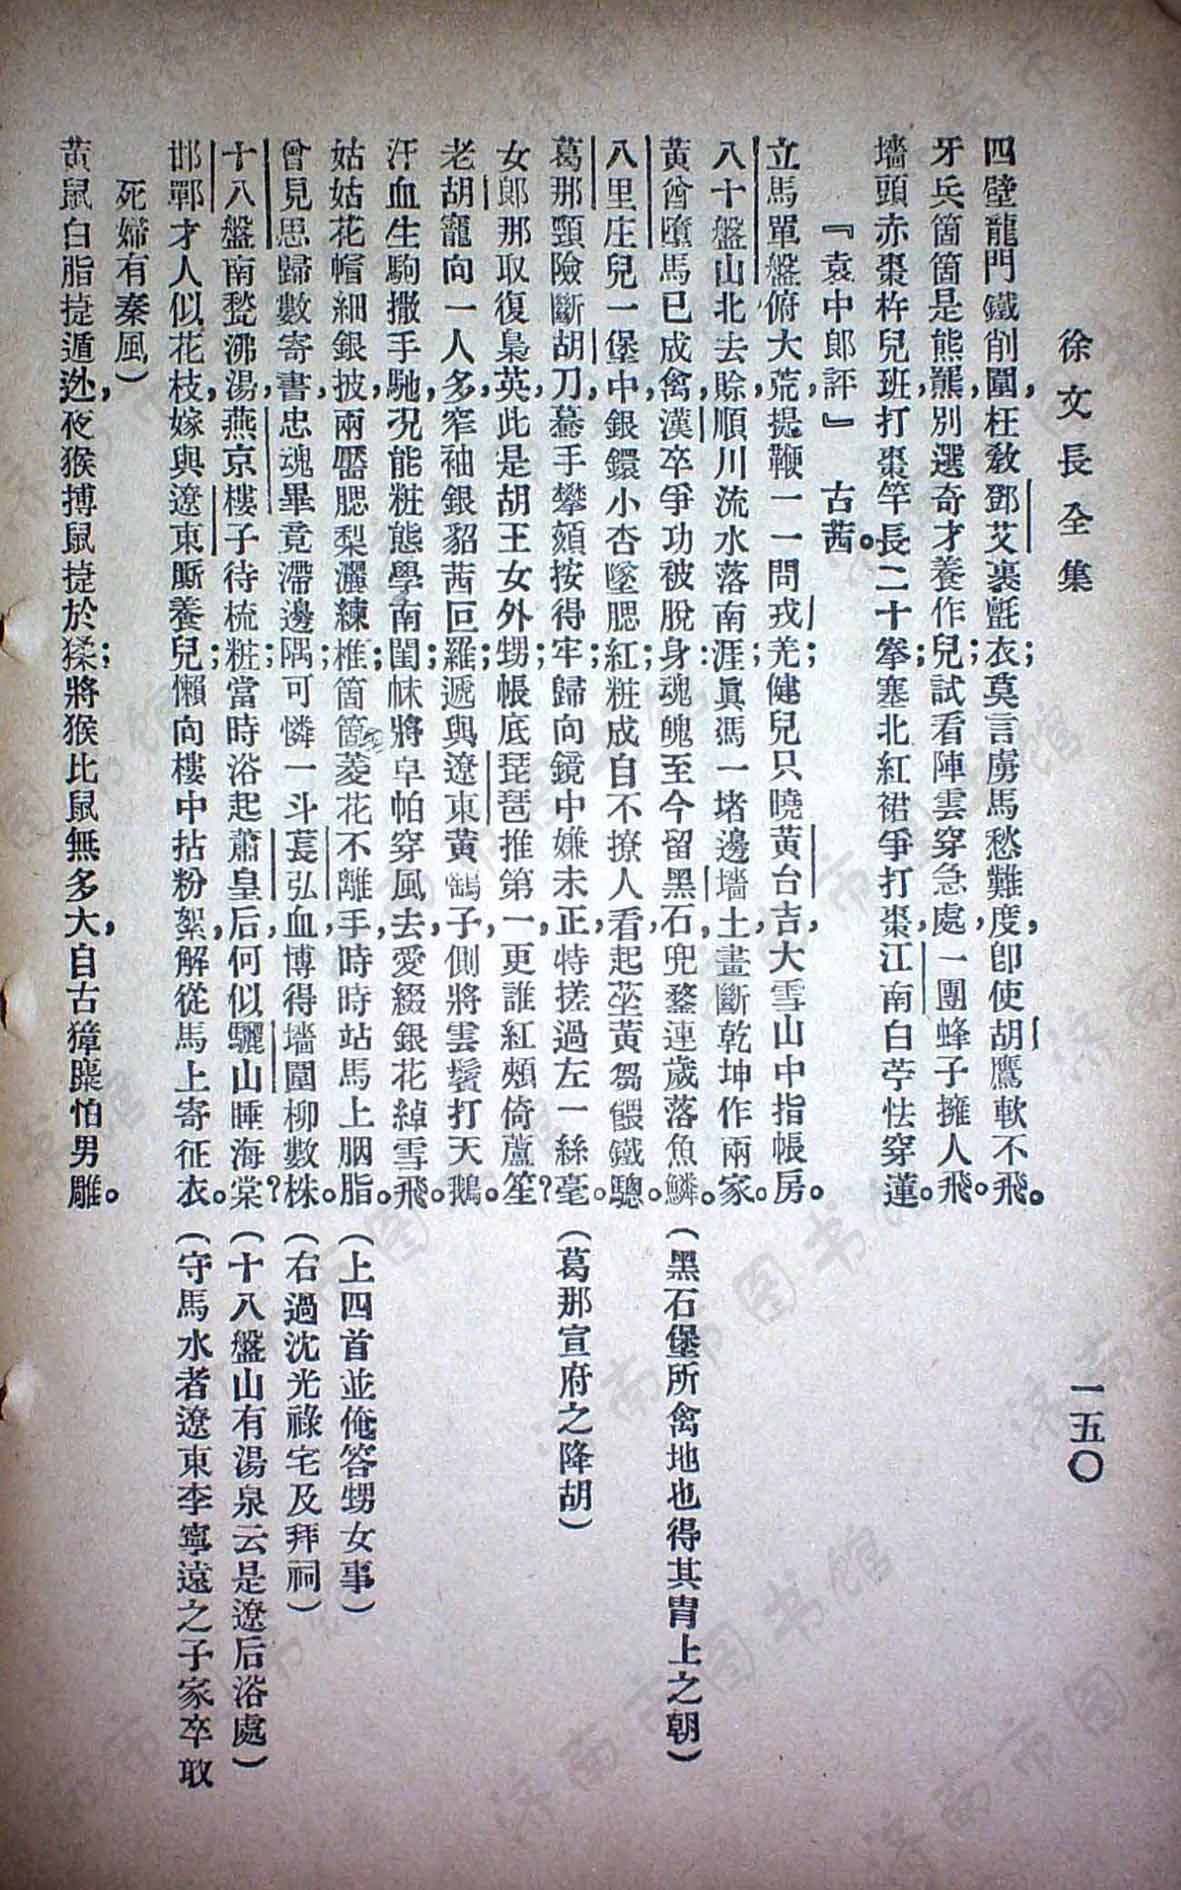 徐文長全集
一五〇
四壁龍門鐵削圍，枉敎鄧艾裹氈衣；莫言虜馬愁難度，卽使胡鷹軟不飛。
牙兵箇箇是熊羆，別選奇才養作兒；試看陣雲穿急處，一團蜂子擁人飛。
墻頭赤棗杵兒班，打棗竿長二十拳；塞北紅裙爭打棗，江南白苧怯穿蓮。
『袁中郎評』　古茜。
立馬單盤俯大荒，提鞭一一問戎羌；健兒只曉黃台吉，大雪山中指帳房。
八十盤山北去賒，順川流水落南涯；眞馮一堵邊墻土，畫斷乾坤作兩家。
黃酋墮馬已成禽，漢卒爭功被脫身：魂魄至今留黑石，兜鍪連歲落魚鱗。（黑石堡所禽地也得其胄上之朝）
八里庄兒一堡中，銀鐶小杏墜腮紅；粧成自不撩人看，起莝黃芻餵鐵驄。
葛那頸險斷胡刀，驀手攀頦按得牢；歸向鏡中嫌未正，特搓過左一絲毫。（葛那宣府之降胡）
女郞那取復梟英，此是胡王女外甥；帳底琵琶推第一，更誰紅頰倚蘆笙？
老胡寵向一人多，窄袖銀貂茜叵羅；遞與遼東黃鷂子，側將雲鬢打天鵝。
汗血生駒撒手馳，况能粧態學南閨；帓將皁帕穿風去，愛綴銀花綽雪飛。
姑姑花帽細銀披，兩靨腮梨灑練椎；箇箇菱花不離手，時時站馬上胭脂。（上四首並俺答甥女事）
曾見思歸數寄書，忠魂畢竟滯邊隅；可憐一斗萇弘血，博得墻圍柳數株。（右過沈光祿宅及拜祠）
十八盤南甃沸湯，燕京樓子待梳粧；當時浴起蕭皇后，何似驪山睡海棠？（十八盤山有湯泉云是遼后浴處）
邯鄲才人似花枝，嫁與遼東厮養兒；懶向樓中拈粉絮，解從馬上寄征衣。（守馬水者遼東李寧遠之子家卒敢
死婦有秦風）
黃鼠白脂㨗遁迯，夜猴搏鼠㨗於猱；將猴比鼠無多大，自古獐麋怕男雕。